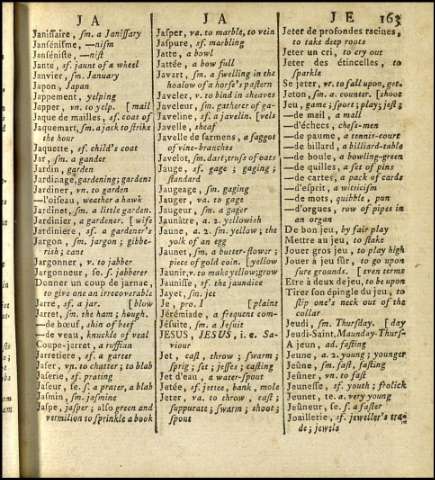 J A
J A
J E 163
Janissaire, sm. a Janissary
Jansénisme, —nism
Janséniste, —nist
Jante, sf. jaunt of a wheel
Janvier, sm. January
Japon, Japan
Jappement, yelping
Japper, vn. to yelp. [mail
Jaque de mailles, sf. coat of
Jaquemart, sm. a jack to strike
the hour
Jaquette, sf. child's coat
Jar, sm. a gander
Jardin, garden
Jardinage, gardening; garden
Jardiner, vn. to garden
—l'oiseau, weather a hawk
Jardinet, sm. a little garden.
Jardinier, a gardener. [wife
Jardiniere, sf. a gardener's
Jargon, sm. jargon; gibbe-
rish; cant
Jargonner, v. to jabber
Jargonneur, se. f. jabberer
Donner un coup de jarnac,
to give one an irrecoverable
Jarre, sf. a jar. [blow
Jarret, sm. the ham; hough.
—de bœuf, shin of beef
—de veau, knuckle of veal
Coupe-jarret, a ruffian
Jarretiere, sf. a garter
Jaser, vn. to chatter; to blab
Jaserie, sf. prating
Jaseur, se. f. a prater, a blab
Jasmin, sm. jasmine
Jaspe, jasper; also green and
vermilion to sprinkle a book
Jasper, va. to marble, to vein
Jaspure, sf. marbling
Jatte, a bowl
Jattée, a bow full
Javart, sm. a swelling in the
hoalow of a horse's pastern
Javeler, v. to bind in sheaves
Javeleur, sm. gatherer of ga-
Javeline, sf. a javelin. [vels
Javelle, sheaf
Javelle de sarmens, a faggot
of vine-branches
Javelot, sm. dart; truss of oats
Jauge, sf. gage; gaging;
standard
Jaugeage, sm. gaging
Jauger, va. to gage
Jaugeur, sm. a gager
Jaunâtre, a. 2. yellowish
Jaune, a. 2. sm. yellow; the
yolk of an egg
Jaunet, sm. a butter-flower;
piece of gold coin. [yellow
Jaunir, v. to make yellow; grow
Jaunisse, sf. the jaundice
Jayet, sm. jet
Je, pro. I [plaint
Jérémiade, a frequent com-
Jésuite, sm. a Jesuit
JESUS, JESUS, i. e. Sa-
viour
Jet, cast, throw; swarm;
sprig; set; jesses; casting
Jet d'eau, a water-spout
Jetée, sf. jettee, bank, mole
Jeter, va. to throw, cast;
suppurate; swarm; shoot;
spout
Jeter de profondes racines,
to take deep roots
Jeter un cri, to cry out
Jeter des étincelles, to
sparkle
Se jeter, vr. to fall upon, get.
Jeton, sm. a counter. [shoot
Jeu, game; sport; play; jest;
—de mail, a mall
—d'échecs, chess-men
—de paume, a tennis-court
—de billard, a billiard-table
—de boule, a bowling-green
—de quilles, a set of pins
—de cartes, a pack of cards
—d'esprit, a witicism
—de mots, quibble, pun
—d'orgues, row of pipes in
an organ
De bon jeu, by fair play
Mettre au jeu, to stake
Jouer gros jeu, to play high
Jouer à jeu sûr, to go upon
sure grounds. [even terms
Etre à deux de jeu, to be upon
Tirer son épingle du jeu, to
slip one's neck out of the
collar
Jeudi, sm. Thursday. [day
Jeudi-Saint, Maunday-Thurs-
A jeun, ad. fasting
Jeune, a. 2. young; younger
Jeûne, sm. fast, fasting
Jeûner, vn. to fast
Jeunesse, sf. youth; frolick
Jeunet, te. a. very young
Jeûneur, se. f. a faster
Joaillerie, sf. jeweller's tra-
de; jewels